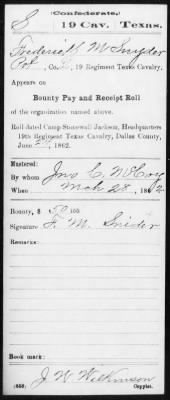 (Confederate.)
S 19 Cav. Texas.
Frederick M Snyder
Pvt, Co. , 19 Regiment Texas Cavalry.
Appears on
Bounty Pay and Receipt Roll
of the organization named above.
Roll dated Camp Stonewall Jackson, Headquarters
19th Regiment Texas Cavalry, Dallas County,
June , 1862.
Mustered:
By whom Jno C. McCoy
When Mch 28, 1862
Bounty, $ 50 100
Signature F. M. Snider
Remarks:
Book mark:
J. W. Wilkinson
(658) Copyist.